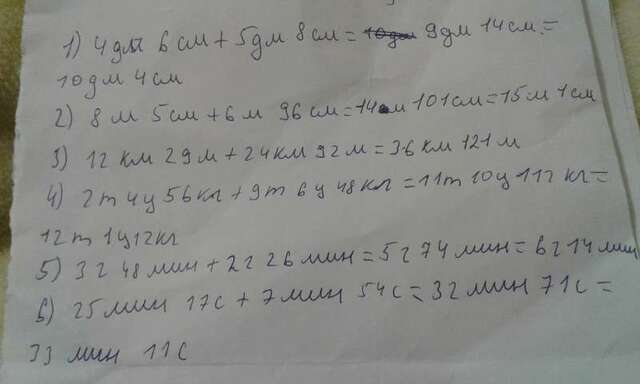 1) 4 дм 6 см + 5 дм 8 см = 10 дм 9 дм 14 см =
10 дм 4 см
2) 8 м 5 см + 6 м 96 см = 14 м 101 см = 15 м 1 см
3) 12 км 29 м + 24 км 92 м = 36 км 121 м
4) 2 т 4 ц 56 кг + 9 т 6 ц 48 кг = 11 т 10 ц 112 кг =
12 т 1 ц 12 кг
5) 3 г 48 мин + 2 г 26 мин = 5 г 74 мин = 6 г 14 мин
6) 25 мин 17 с + 7 мин 54 с = 32 мин 71 с =
33 мин 11 с